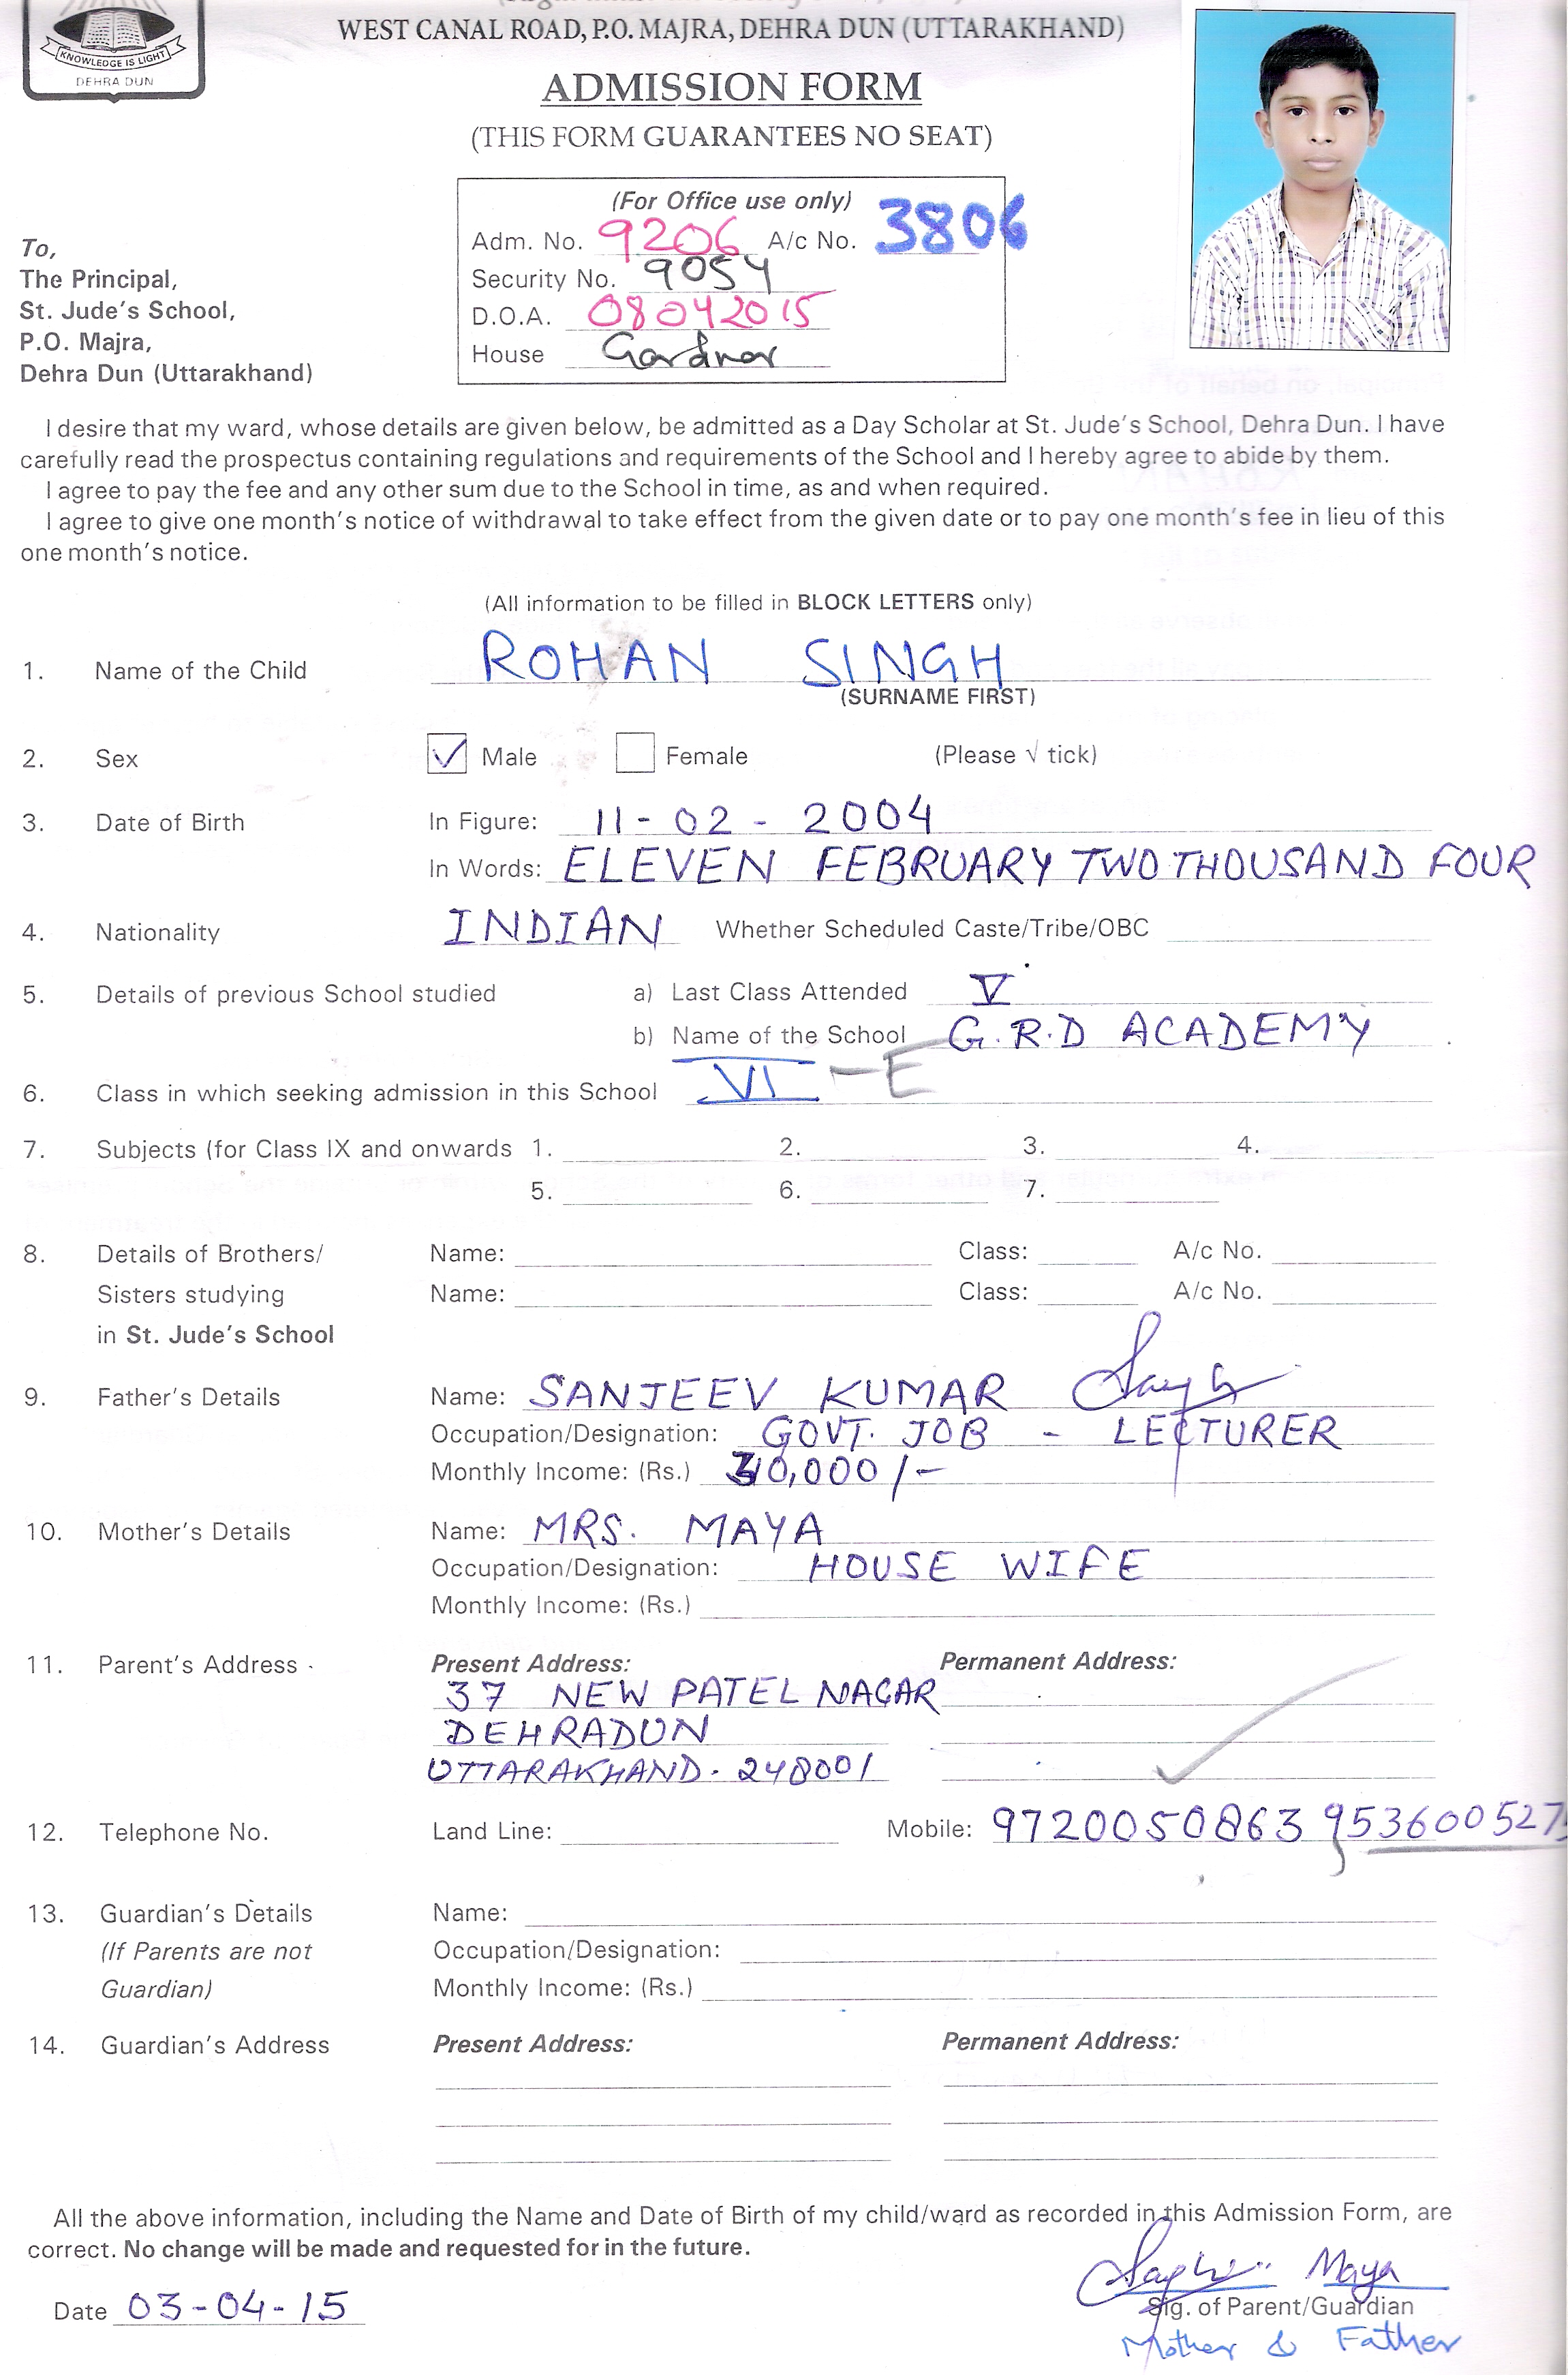 KNOWLEDGE IS LIGHT
DEHRA DUN
WEST CANAL ROAD, P.O. MAJRA, DEHRA DUN (UTTARAKHAND)
ADMISSION FORM
(THIS FORM GUARANTEES NO SEAT)
(For Office use only)
Adm. No. 9206 A/c No. 3806
Security No. 9054
D.O.A. 08042015
House Gardner
To,
The Principal,
St. Jude's School,
P.O. Majra,
Dehra Dun (Uttarakhand)
I desire that my ward, whose details are given below, be admitted as a Day Scholar at St. Jude's School, Dehra Dun. I have
carefully read the prospectus containing regulations and requirements of the School and I hereby agree to abide by them.
I agree to pay the fee and any other sum due to the School in time, as and when required.
I agree to give one month's notice of withdrawal to take effect from the given date or to pay one month's fee in lieu of this
one month's notice.
(All information to be filled in BLOCK LETTERS only)
1. Name of the Child ROHAN SINGH
(SURNAME FIRST)
2. Sex ✓ Male Female (Please √ tick)
3. Date of Birth In Figure: 11-02-2004
In Words: ELEVEN FEBRUARY TWO THOUSAND FOUR
4. Nationality INDIAN Whether Scheduled Caste/Tribe/OBC
5. Details of previous School studied a) Last Class Attended V
b) Name of the School G.R.D ACADEMY
6. Class in which seeking admission in this School VI-E
7. Subjects (for Class IX and onwards 1. 2. 3. 4.
5. 6. 7.
8. Details of Brothers/ Name: Class: A/c No.
Sisters studying Name: Class: A/c No.
in St. Jude's School
9. Father's Details Name: SANJEEV KUMAR
Occupation/Designation: GOVT. JOB - LECTURER
Monthly Income: (Rs.) 30,000/-
10. Mother's Details Name: MRS. MAYA
Occupation/Designation: HOUSE WIFE
Monthly Income: (Rs.)
11. Parent's Address Present Address: Permanent Address:
37 NEW PATEL NAGAR
DEHRADUN
UTTARAKHAND. 248001
12. Telephone No. Land Line: Mobile: 9720050863
13. Guardian's Details Name:
(If Parents are not Occupation/Designation:
Guardian) Monthly Income: (Rs.)
14. Guardian's Address Present Address: Permanent Address:
All the above information, including the Name and Date of Birth of my child/ward as recorded in this Admission Form, are
correct. No change will be made and requested for in the future.
Maya
Date 03-04-15 Sig. of Parent/Guardian
Mother & Father